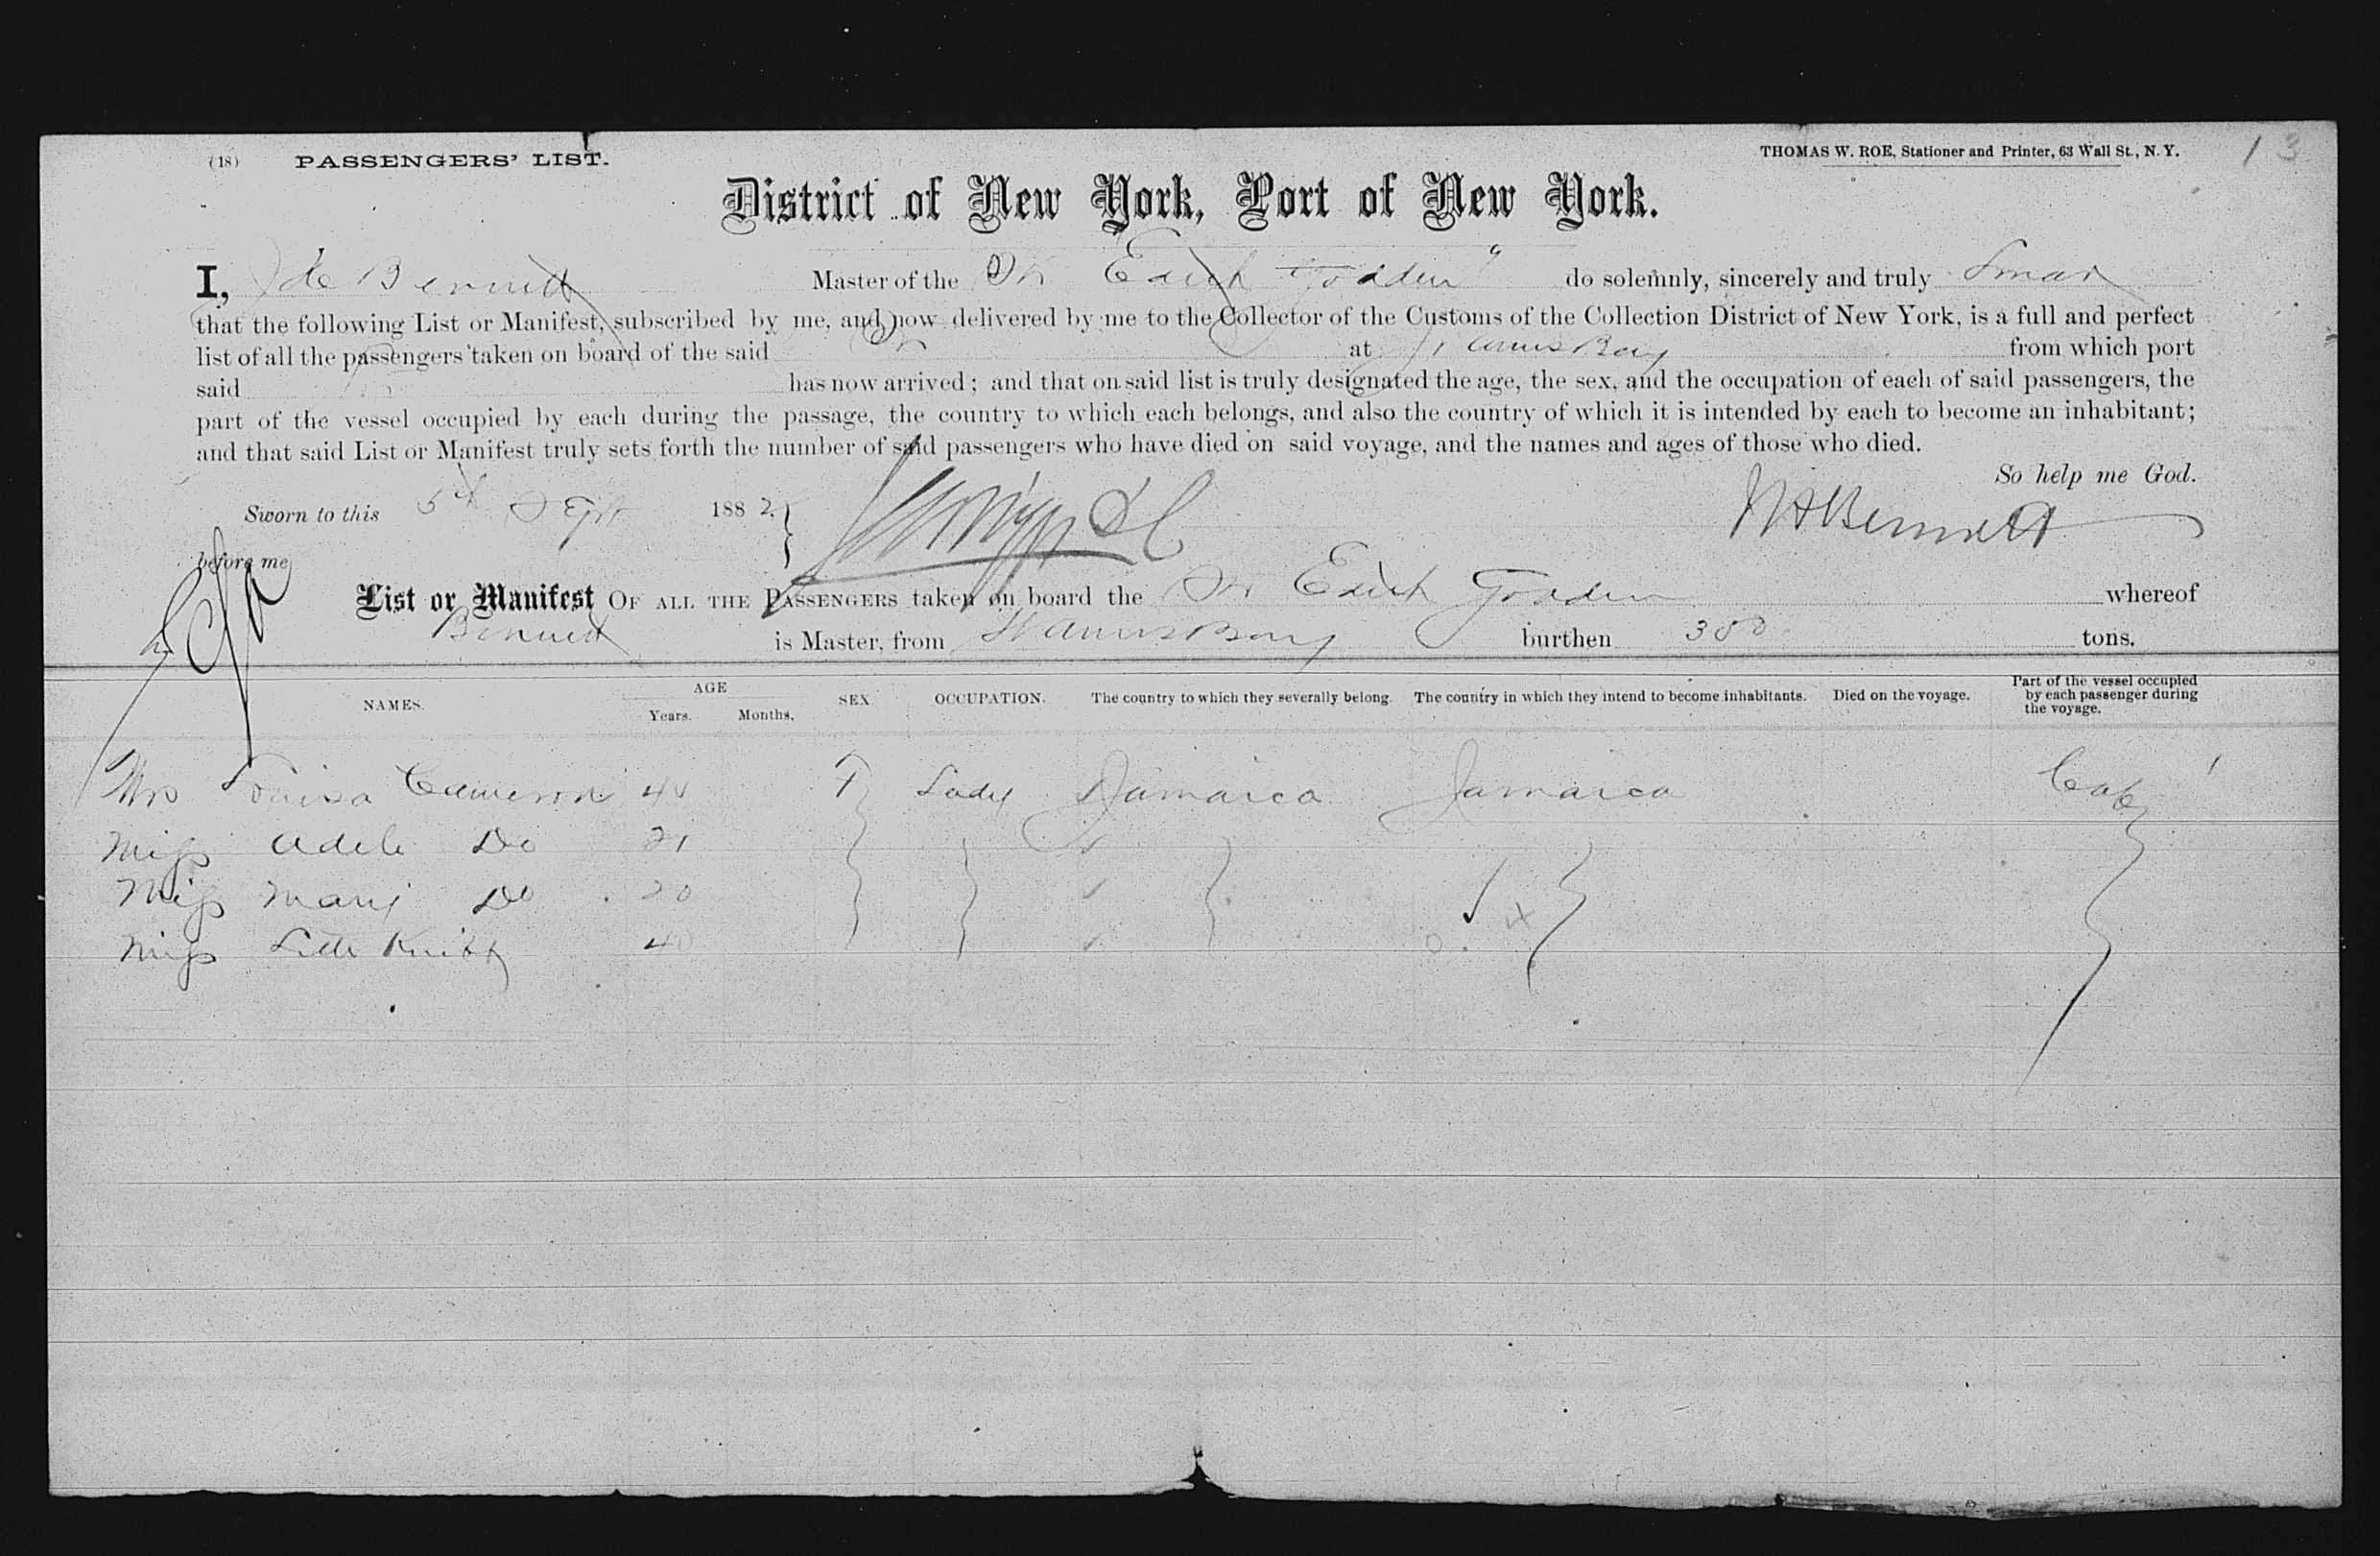 (18) PASSENGERS' LIST. THOMAS W. ROE, Stationer and Printer, 63 Wall St., N. Y. 13
District of New York, Port of New York.
I, Bennett Master of the Str Edith Godden" do solemnly, sincerely and truly Swear
that the following List or Manifest, subscribed by me, and now delivered by me to the Collector of the Customs of the Collection District of New York, is a full and perfect
list of all the passengers taken on board of the said Str at St Anns Bay from which port
said has now arrived; and that on said list is truly designated the age, the sex, and the occupation of each of said passengers, the
part of the vessel occupied by each during the passage, the country to which each belongs, and also the country of which it is intended by each to become an inhabitant;
and that said List or Manifest truly sets forth the number of said passengers who have died on said voyage, and the names and ages of those who died.
So help me God.
Sworn to this 5th Sept 1882 Bennett
before me
List or Manifest OF ALL THE PASSENGERS taken on board the Str Edith Godden whereof
Bennett is Master, from St Anns Bay burthen 380 tons.
NAMES. AGE Years. Months. SEX OCCUPATION. The country to which they severally belong. The country in which they intend to become inhabitants. Died on the voyage. Part of the vessel occupied by each passenger during the voyage.
Mrs Louisa Cameron F Lady Jamaica Jamaica Cab
Miss Adele Do 21
Miss Mary Do 20
Miss Knibb 40